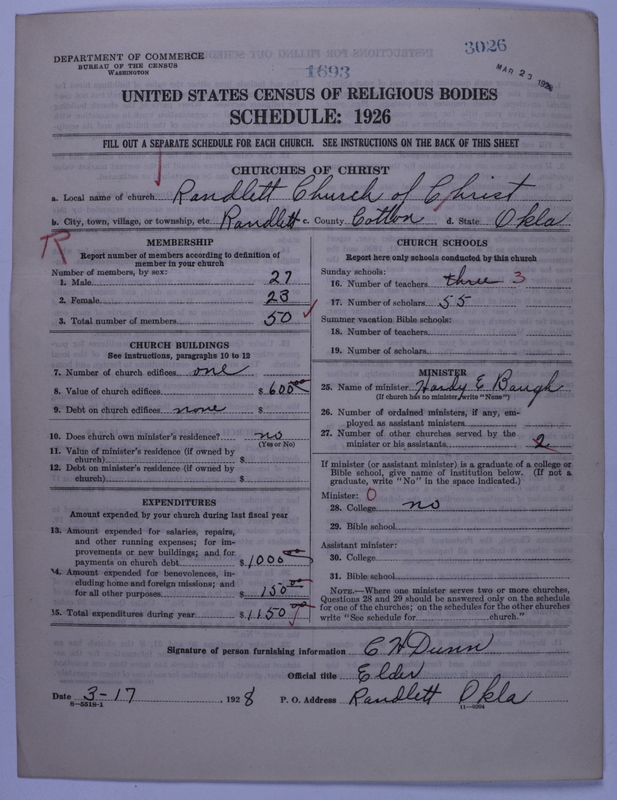 DEPARTMENT OF COMMERCE
BUREAU OF THE CENSUS
WASHINGTON
3026
1693
MAR 23 1928
UNITED STATES CENSUS OF RELIGIOUS BODIES
SCHEDULE: 1926
FILL OUT A SEPARATE SCHEDULE FOR EACH CHURCH. SEE INSTRUCTIONS ON THE BACK OF THIS SHEET
CHURCHES OF CHRIST
a. Local name of church Randlett Church of Christ
b. City, town, village, or township, etc. Randlett c. County Cotton d. State Okla
R
MEMBERSHIP
Report number of members according to definition of
member in your church
Number of members, by sex:
1. Male 27
2. Female 23
3. Total number of members 50
CHURCH BUILDINGS
See instructions, paragraphs 10 to 12
7. Number of church edifices one
8. Value of church edifices $ 600 00
9. Debt on church edifices none $
10. Does church own minister's residence? no
(Yes or No)
11. Value of minister's residence (if owned by
church) $
12. Debt on minister's residence (if owned by
church) $
EXPENDITURES
Amount expended by your church during last fiscal year
13. Amount expended for salaries, repairs,
and other running expenses; for im-
provements or new buildings; and for
payments on church debt $ 1000 00
14. Amount expended for benevolences, in-
cluding home and foreign missions; and
for all other purposes $ 150 00
15. Total expenditures during year $ 1150 00
CHURCH SCHOOLS
Report here only schools conducted by this church
Sunday schools:
16. Number of teachers three 3
17. Number of scholars 55
Summer vacation Bible schools:
18. Number of teachers
19. Number of scholars
MINISTER
25. Name of minister Hardy E Baugh
(If church has no minister, write "None")
26. Number of ordained ministers, if any, em-
ployed as assistant ministers
27. Number of other churches served by the
minister or his assistants 2
If minister (or assistant minister) is a graduate of a college or
Bible school, give name of institution below. (If not a
graduate, write "No" in the space indicated.)
Minister: 0
28. College no
29. Bible school
Assistant minister:
30. College
31. Bible school
NOTE.—Where one minister serves two or more churches,
Questions 28 and 29 should be answered only on the schedule
for one of the churches; on the schedules for the other churches
write "See schedule for church."
Signature of person furnishing information C H Dunn
Official title Elder
Date 3-17, 1928 P. O. Address Randlett Okla
8—5518-1
11—9224